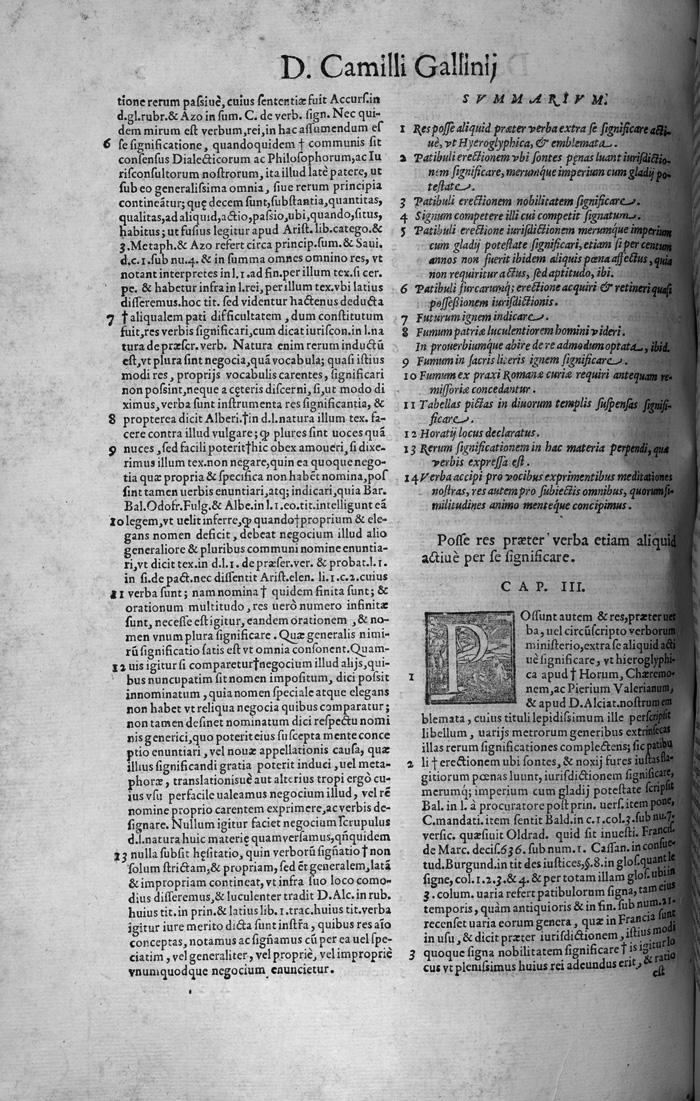 D. Camilli Gallinij
tione rerum paſsiuè, cuius ſententiæ fuit Accurſ.in
d.gl.rubr.& Azo in ſum. C. de verb. ſign. Nec qui-
dem mirum eſt verbum,rei,in hac aſſumendum eſ
6 ſe ſignificatione, quandoquidem † communis ſit
conſenſus Dialecticorum ac Philoſophorum,ac Iu
riſconſultorum noſtrorum, ita illud latè patere, ut
ſub eo generaliſsima omnia, ſiue rerum principia
contineãtur; quę decem ſunt,ſubſtantia,quantitas,
qualitas,ad aliquid,actio,paſsio,ubi,quando,ſitus,
habitus; ut fuſius legitur apud Ariſt.lib.catego.&
3.Metaph.& Azo refert circa princip.ſum.& Saui.
d.c.1.ſub nu.4.& in ſumma omnes omnino res, vt
notant interpretes in l.1.ad fin.per illum tex.ſi cer.
pe. & habetur infra in l.rei,per illum tex.vbi latius
diſſeremus.hoc tit. ſed videntur hactenus deducta
7 † aliqualem pati difficultatem, dum conſtitutum
fuit,res verbis ſignificari,cum dicat iuriſcon.in l.na
tura de præſcr. verb. Natura enim rerum inductũ
eſt,vt plura ſint negocia,quã vocabula; quaſi iſtius
modi res, proprijs vocabulis carentes, ſignificari
non poſsint,neque a cęteris diſcerni, ſi,ut modo di
ximus,verba ſunt inſtrumenta res ſignificantia, &
8 propterea dicit Alberi.†in d.l.natura illum tex. fa-
cere contra illud vulgare; ꝙ plures ſint uoces quã
9 nuces, ſed facili poterit†hic obex amoueri, ſi dixe-
rimus illum tex.non negare,quin ea quoque nego-
tia quæ propria & ſpecifica non habẽt nomina,poſ
ſint tamen uerbis enuntiari,atq; indicari,quia Bar.
Bal.Odofr.Fulg.& Albe.in l.1.eo.tit.intelligunt eã
10 legem,vt uelit inferre,ꝙ quando†proprium & ele-
gans nomen deficit, debeat negocium illud alio
generaliore & pluribus communi nomine enuntia-
ri,vt dicit tex.in d.l.1.de præſer.ver. & probat.l.1.
in ſi.de pact.nec diſſentit Ariſt.elen. li.1.c.2.cuius
11 verba ſunt; nam nomina † quidem finita ſunt; &
orationum multitudo, res uerò numero infinitæ
ſunt, neceſſe eſt igitur, eandem orationem, & no-
men vnum plura ſignificare. Quæ generalis nimi-
rũ ſignificatio ſatis eſt vt omnia conſonent.Quam-
12 uis igitur ſi comparetur†negocium illud alijs,qui-
bus nuncupatim ſit nomen impoſitum, dici poſsit
innominatum, quia nomen ſpeciale atque elegans
non habet vt reliqua negocia quibus comparatur;
non tamen deſinet nominatum dici reſpectu nomi
nis generici,quo poterit eius ſuſcepta mente conce
ptio enuntiari, vel nouæ appellationis cauſa, quæ
illius ſignificandi gratia poterit induci, uel meta-
phoræ, translationisuè aut alterius tropi ergò cu-
ius vſu perfacile ualeamus negocium illud, vel rẽ
nomine proprio carentem exprimere,ac verbis de-
ſignare. Nullum igitur faciet negocium ſcrupulus
d.l.natura huic materię quam verſamus,qñquidem
13 nulla ſubſit hęſitatio, quin verborũ ſignatio † non
ſolum ſtrictam,& propriam, ſed ẽt generalem,latã
& impropriam contineat, vt infra ſuo loco como-
dius diſſeremus,& luculenter tradit D.Alc.in rub.
huius tit.in prin.& latius lib.1.trac.huius tit.verba
igitur iure merito dicta ſunt inſtr̃a, quibus res aĩo
conceptas, notamus ac ſigñamus cũ per ea uel ſpe-
ciatim, vel generaliter, vel propriè, vel impropriè
vnumquodque negocium enuncietur.
SVMMARIVM.
1 Res poſſe aliquid præter verba extra ſe ſignificare acti-
uè, vt Hyeroglyphica, & emblemata.
2 Patibuli erectionem vbi ſontes penas luant iuriſdictio-
nem ſignificare, merumque imperium cum gladij po-
teſtate.
3 Patibuli erectionem nobilitatem ſignificare.
4 Signum competere illi cui competit ſignatum.
5 Patibuli erectione iuriſdictionem merumque imperium
cum gladij poteſtate ſignificari, etiam ſi per centum
annos non fuerit ibidem aliquis pœna affectus, quia
non requiritur actus, ſed aptitudo, ibi.
6 Patibuli furcarumq; erectione acquiri & retineri quaſi
poſſeſsionem iuriſdictionis.
7 Futurum ignem indicare.
8 Fumum patriæ luculentiorem homini videri.
In prouerbiumque abire de re admodum optata, ibid.
9 Fumum in ſacris literis ignem ſignificare.
10 Fumum ex praxi Romanæ curiæ requiri antequam re-
miſſoriæ concedantur.
11 Tabellas pictas in diuorum templis ſuſpenſas ſignifi-
ficare.
12 Horatij locus declaratus.
13 Rerum ſignificationem in hac materia perpendi, quæ
verbis expreſſa eſt.
14 Verba accipi pro vocibus exprimentibus meditationes
noſtras, res autem pro ſubiectis omnibus, quorum ſi-
militudines animo menteque concipimus.
Poſſe res præter verba etiam aliquid
actiuè per ſe ſignificare.
CAP. III.
POſſunt autem & res,præter uer
ba, uel circũſcripto verborum
miniſterio,extra ſe aliquid acti
uè ſignificare, vt hieroglyphi-
1 ca apud † Horum, Chæremo-
nem,ac Pierium Valerianum,
& apud D.Alciat.noſtrum em
blemata, cuius tituli lepidiſsimum ille perſcripſit
libellum, uarijs metrorum generibus extrinſecas
illas rerum ſignificationes complectens; ſic patibu
2 li † erectionem ubi ſontes, & noxij fures iuſtas fla-
gitiorum pœnas luunt, iuriſdictionem ſignificare,
merumq; imperium cum gladij poteſtate ſcripſit
Bal. in l. à procuratore poſt prin. uerſ.item pone,
C.mandati. item ſentit Bald.in c.1.col.3.ſub nu.7.
verſic. quæſiuit Oldrad. quid ſit inueſti. Franciſ.
de Marc. deciſ.636.ſub num.1. Caſſan.in conſue-
tud.Burgund.in tit des iuſtices,§.8.in gloſ.quant le
ſigne, col.1.2.3.& 4.& per totam illam gloſ.ubi in
3.colum. uaria refert patibulorum ſigna, tam eius
temporis, quàm antiquioris & in fin. ſub num.21.
recenſet uaria eorum genera, quæ in Francia ſunt
in uſu, & dicit præter iuriſdictionem, iſtius modi
3 quoque ſigna nobilitatem ſignificare † is igitur lo
cus vt pleniſsimus huius rei adeundus erit, & ratio
eſt